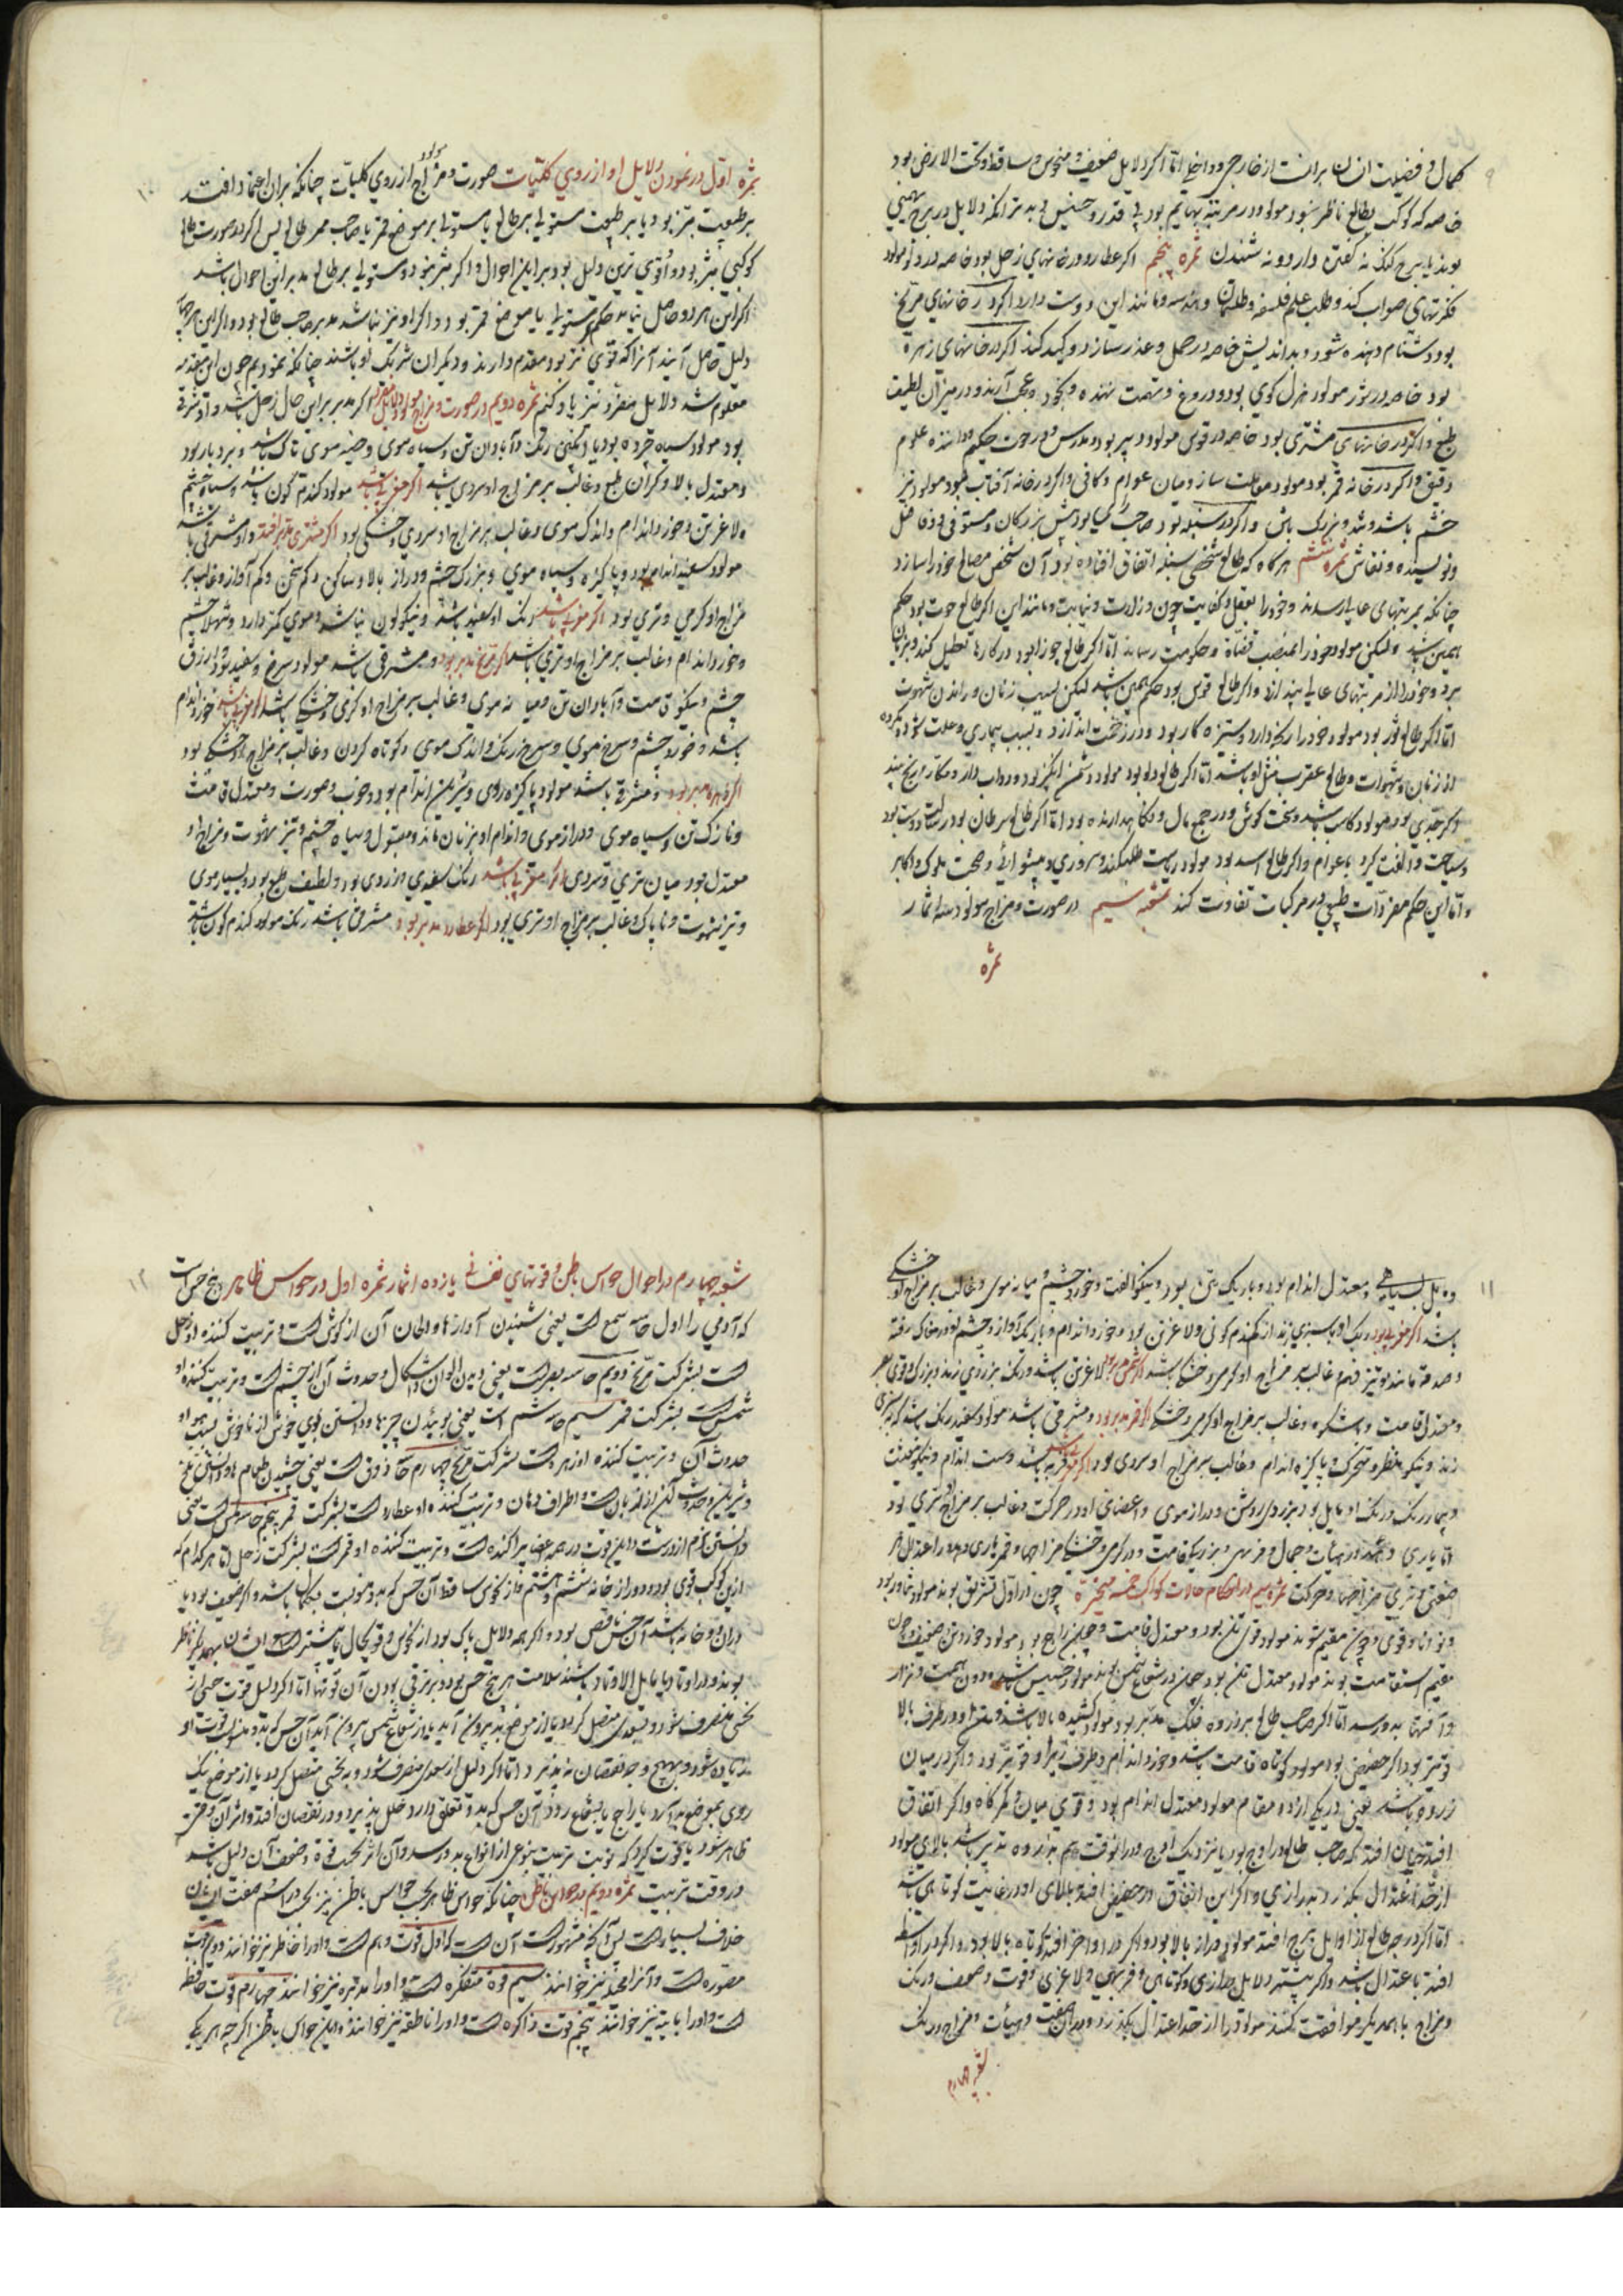 کمال و فضیلت انسان برانست از خارجی و داخلی اما اگر دلایل ضعیف و منحوس و ساقط و تحت الارض بود
خاصه که کوکب بطالع ناظر نبود مولود در مرتبه بهایم بود بی قدر و خسیس و بدتر آنکه دلایل در برج بهیمی
بوند یا برج گنگ نه گفتن دارد و نه شنیدن ثمره پنجم اگر عطارد در خانهای زحل بود خاصه در دلو مولود
فکرتهای صواب کند و طلب علم فلسفه و طلسمات و هندسه و مانند این دوست دارد اگر در خانهای مریخ
بود دشنام دهنده شود و بد اندیش خاصه در حمل و عذر سازد و کید کند اگر در خانهای زهره
بود خاصه در ثور مولود هزل گوی بود و دروغ و تهمت نهنده و بخود و عجب آرنده و در میزان لطیف
طبع و اگر در خانهای مشتری بود خاصه در قوس مولود دبیر بود و مدرس و در حوت حکیم و داننده علوم
دقیق و اگر در خانه قمر بود مولود معاملت سازد میان عوام و کافی و اگر در خانه آفتاب بود مولود تیز
خشم باشد و تند و بزرگ باش و اگر در سنبله بود صاحب رای بود پیش بزرگان و مستوفی و فاضل
و نویسنده و نقاش ثمره ششم هرگاه که طالع شخصی سنبله اتفاق افتاده بود آن شخص مصالح خود را سازد
چنانکه بمرتبهای عالی رسد و خود را بعقل و کفایت چون وزارت و نیابت و مانند این اگر طالع حوت بود حکم
همین باشد ولیکن مولود خود را بمنصب قضاة و حکومت رساند اما اگر طالع جوزا بود در کارها تعطیل کند و بزیان
برد و خود را از مرتبهای عالی بیندازد و اگر طالع قوس بود حکم همین باشد لیکن بسبب زنان و راندن شهوت
اما اگر طالع ثور بود مولود خود را رنجه دارد و ستیزه کار بود و در زحمت اندازد و بسبب بیماری و علت شود
از زنان و شهوات و طالع عقرب مثل او باشد اما اگر طالع دلو بود مولود دشمن انگیز بود و دواب دار و مکار رنج بیند
اگر جدی بود مولود کاسب باشد و سخت کوش و در جمع مال و نگاهدارنده بود اما اگر طالع سرطان بود
و سیاحت و الفت گیرد با عوام و اگر طالع اسد بود مولود ریاست طلب کند و سروری و پیشوائی و صحبت ملوک و اکابر
و اما این حکم مفردات طبیعی در مرکبات تفاوت کند شعبه سیم در صورت و مزاج مولود سه اثمار
ثمره
ثمره اول در نمودن دلایل او از روی کلیات صورت و مزاج مولود از روی کلیات چنانکه بران اعتماد افتد
بر طبیعت مبتز بود یا بر طبیعت مستولی بر طالع یا مستولی بر موضع قمر یا صاحب ممر طالع پس اگر در صورت طالع
کوکبی مبتز بود و او قوی ترین دلیل بود بر این احوال و اگر مبتز نبود و مستولی بر طالع مدبر این احوال باشد
اگر این هر دو حاصل نیاید حکم بر مستولی یا موضع قمر بود و اگر او نیز نباشد مدبر صاحب طالع بود و اگر این هر چهار
دلیل حاصل آیند آنرا که قوی تر بود مقدم دارند و دیگران شریک او باشند چنانکه نمودیم چون این مقدمه
معلوم شد دلایل مفرد نیز یاد کنیم ثمره دویم در صورت و مزاج مولود اگر مدبر برین حال زحل باشد و او شرقی
بود مولود سیاه چرده بود یا رنگ و آبادان تن و سیاه موی و جعد موی ناک باشد و بردبار بود
و معتدل بالا و گران طبع و غالب بر مزاج او سردی باشد اگر مغربی باشد مولود گندم گون باشد و سیاه چشم
و لاغر تن و خورد اندام و اندک موی و غالب بر مزاج او سردی و خشکی بود اگر مشتری مدبر افتد و او شرقی باشد
مولود سفید اندام بود و پاکیزه و سیاه موی و بزرگ چشم و دراز بالا و ساکن و کم سخن و کم آواز و غالب بر
مزاج او گرمی و تری بود اگر مغربی باشد رنگ او سفید باشد و نیکو لون نباشد و موی کمتر دارد و شهلا چشم
و خورد اندام و غالب بر مزاج او تری باشد اگر مریخ مدبر بود و مشرقی باشد مولود سرخ و سفید بود و ازرق
چشم و نیکو قامت و آبادان تن و میانه موی و غالب بر مزاج او گرمی و خشکی باشد اگر مغربی باشد خورد اندام
باشد و خورد چشم و سرخ موی و سرخ رنگ و اندک موی و کوتاه گردن و غالب بر مزاج او خشکی بود
اگر زهره مدبر بود و مشرقی باشد مولود پاکیزه روی و شیرین اندام بود و خوب صورت و معتدل قامت
و نازک تن و سیاه موی و دراز موی و اندام او بزنان ماند و مقبول و سیاه چشم و تیز شهوت و مزاج او
معتدل بود میان تری و سردی اگر مغربی باشد رنگ سفیدی بزردی بود و لطیف طبع بود و بسیار موی
و تیز شهوت و ناپاک و غالب بر مزاج او تری بود اگر عطارد مدبر بود و مشرقی باشد رنگ مولود گندم گون باشد
و معتدل اندام بود و باریک بینی بود و نیکو الفت و خورد چشم و میانه موی و غالب بر مزاج او خشکی
باشد اگر مغربی بود رنگ او بسبزی زند از گندم گونی و لاغر تن بود و خورد اندام و باریک آواز و چشم او در مغاک رفته
و صدقه مانند و تیز فهم و غالب بر مزاج او گرمی و خشکی باشد اگر شمس مدبر بود لاغر تن باشد و رنگ بزردی زند و بزرگ و قوی
و معتدل قامت و باشکوه و غالب بر مزاج او گرمی و خشکی اگر قمر مدبر بود و مشرقی باشد مولود سفید رنگ باشد که بسبزی
زند و نیکو منظر و متحرک و پاکیزه اندام و غالب بر مزاج او سردی بود اگر مغربی باشد فربه باشد و سست اندام و نیکو محدث
و بیمار رنگ و رنگ او مایل بود بزردی روشن و دراز موی و اعضای او در حرکت و غالب بر مزاج او تری بود
اما یاری دهند در هیئات و جمال و فربهی و بزرگی قامت و در گرمی و خشکی مزاجها و قمر یاری دهد در اعتدال
ضعیفی و تری مزاجها و حرکت ثمره سیم در احکام حالات کواکب خمسه متحیره چون در اول تشریق بوند مولود تناور بود
و توانا و قوی و چون مقیم شوند مولود قوی تن بود و معتدل قامت و چون راجع بود مولود خورد تن ضعیف و چون
مقیم استقامت بوند مولود معتدل تن بود چون در شعاع شمس بوند مولود خسیس باشد و دون همت و نزار
و آفتها بدو رسد اما اگر صاحب طالع بر ذروه فلک مدبر بود مولود کشیده بالا باشد و در طرف بالا
قویتر بود اگر حضیض بود مولود کوتاه قامت باشد و خورد اندام و طرف زیر او قویتر بود و اگر در میان
ذروه باشد یعنی در یکی از دو مقام مولود معتدل اندام بود و قوی میان و کمرگاه و اگر اتفاق
افتد چنان افتد که صاحب طالع در اوج بود یا نزدیک اوج و در آنوقت هم بذروه تدویر باشد بالای مولود
از حد اعتدال بگذرد بدرازی و اگر این اتفاق در حضیض افتد بالای او در غایت کوتاهی باشد
اما اگر درجه طالع از اوایل برج افتد مولود دراز بالا بود و اگر در اواخر افتد کوتاه بالا بود و اگر در اواسط
افتد با عتدال باشد و اگر بیشتر دلایل درازی و کوتاهی و فربهی و لاغری و قوت و ضعف و رنگ
و مزاج با همدیگر موافقت کنند مولود را از حد اعتدال بگذرد و بدان صفت و هیئات و مزاج و رنگ
شعبه چهارم
شعبه چهارم در احوال حواس باطن و قوتهای نفسانی یازده اثمار ثمره اول در حواس ظاهر و پنج حس است
که آدمی را اول حاسه سمع است یعنی شنیدن آوازها و الحان آن از گوش است و تربیت کننده او زحل
است بشرکت مریخ دویم حاسه بصر است یعنی دیدن الوان و اشکال و حدوث آن از چشم است و تربیت کننده او
شمس است بشرکت قمر سیم حاسه شم است یعنی بوئیدن چیزها و دانستن بوی خوش از ناخوش
حدوث آن و تربیت کننده او زهره است بشرکت مریخ چهارم حاسه ذوق است یعنی چشیدن طعام ها و دانستن تلخ
و شیرین و حدوث آن از زبان است و اطراف دهان و تربیت کننده او عطارد است بشرکت قمر پنجم حاسه لمس است یعنی
دانستن نرم از درشت و این قوت در همه اعضا پراکنده است و تربیت کننده او قمر است بشرکت زحل اما هر کدام که
ازین کواکب قوی بود و دور از خانه ششم و هشتم و از نحوس ساقط آن حس که بدو منسوبست بکمال باشد و اگر ضعیف بود یا
در آن دو خانه باشد آن حس ناقص بود و اگر همه دلایل پاک بود از نحوس و قویحال یا بیشتر ایشان بهمدیگر ناظر
بوند و در اوتاد یا مایل الاوتاد باشند سلامت هر پنج حس بود و برتری بودن آن قوتها اما اگر دلیل قوت حسی از
نحسی منصرف شود و بسعدی متصل گردد یا از موضع بد بیرون آید یا از شعاع شمس بیرون آید آن حس که بدو منسوبست قوت او
زیاده شود و بهیچ وجه نقصان نپذیرد اما اگر دلیل از سعدی منصرف شود و به نحسی متصل گردد یا از موضع نیک
روی بموضع بد آرد یا راجع یا بشعاع رود آن حس که بدو تعلق دارد خلل پذیرد و در نقصان افتد و اثر آن وقتی
ظاهر شود یا قوت گیرد که نوبت تربیت بنوعی از انواع بدو رسد و آن اثر بحسب قوة و ضعف آن دلیل باشد
در وقت تربیت ثمره دویم در حواس باطن چنانکه حواس ظاهر پنج است حواس باطن نیز پنج است در اسم و صفت ایشان
خلاف بسیار است پس آنچه مشهور است آن است که اول قوت وهم است و او را حافظه نیز خوانند دوم قوت
مصوره است و آنرا مخیله نیز خوانند سیم قوة متفکره است و او را مدبره نیز خوانند چهارم قوت حافظه
است و او را نیز خوانند پنجم قوت ذاکره است و او را ناطقه نیز خوانند و این حواس باطن اگرچه هر یکی